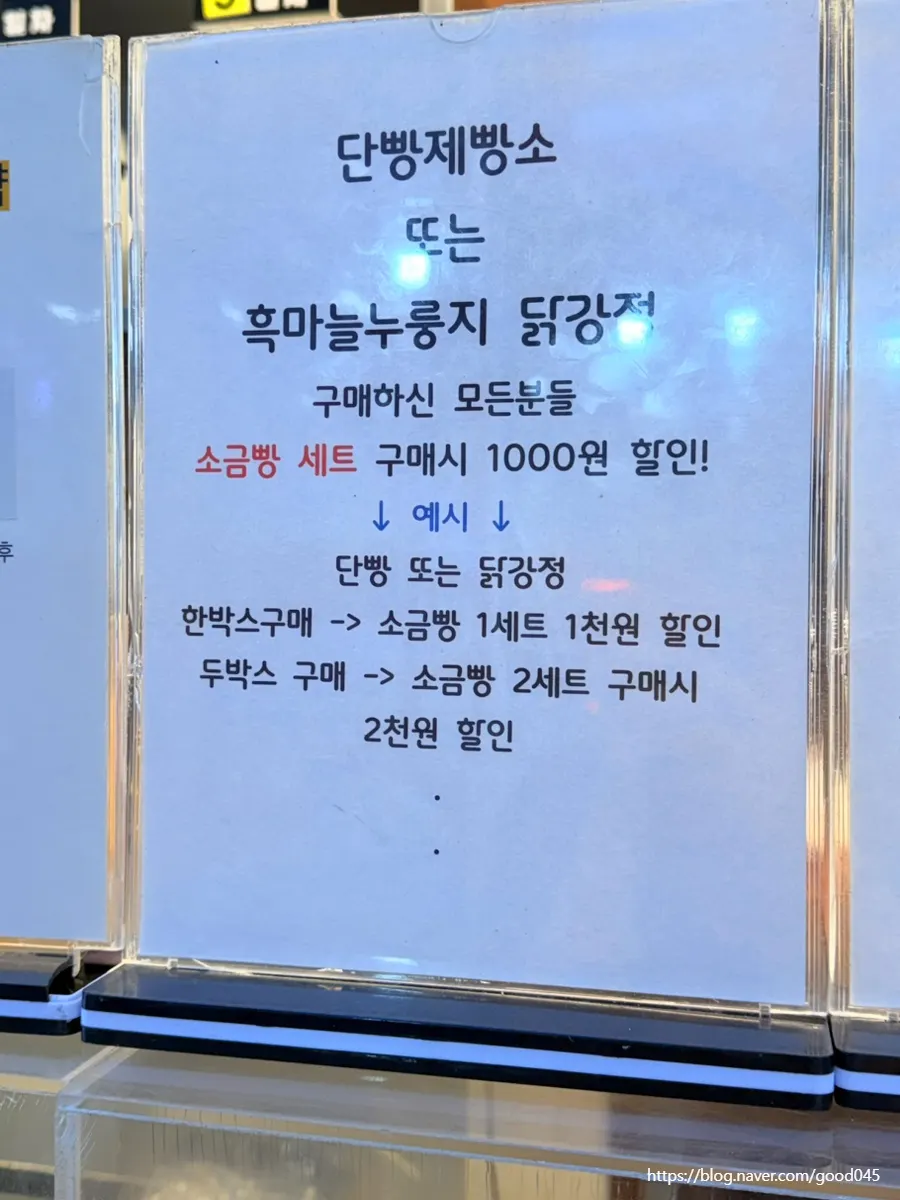 단빵제빵소
또는
흑마늘누룽지 닭강정
구매하신 모든분들
소금빵 세트 구매시 1000원 할인!
↓ 예시 ↓
단빵 또는 닭강정
한박스구매 -> 소금빵 1세트 1천원 할인
두박스 구매 -> 소금빵 2세트 구매시
2천원 할인
.
.
후
https://blog.naver.com/good045